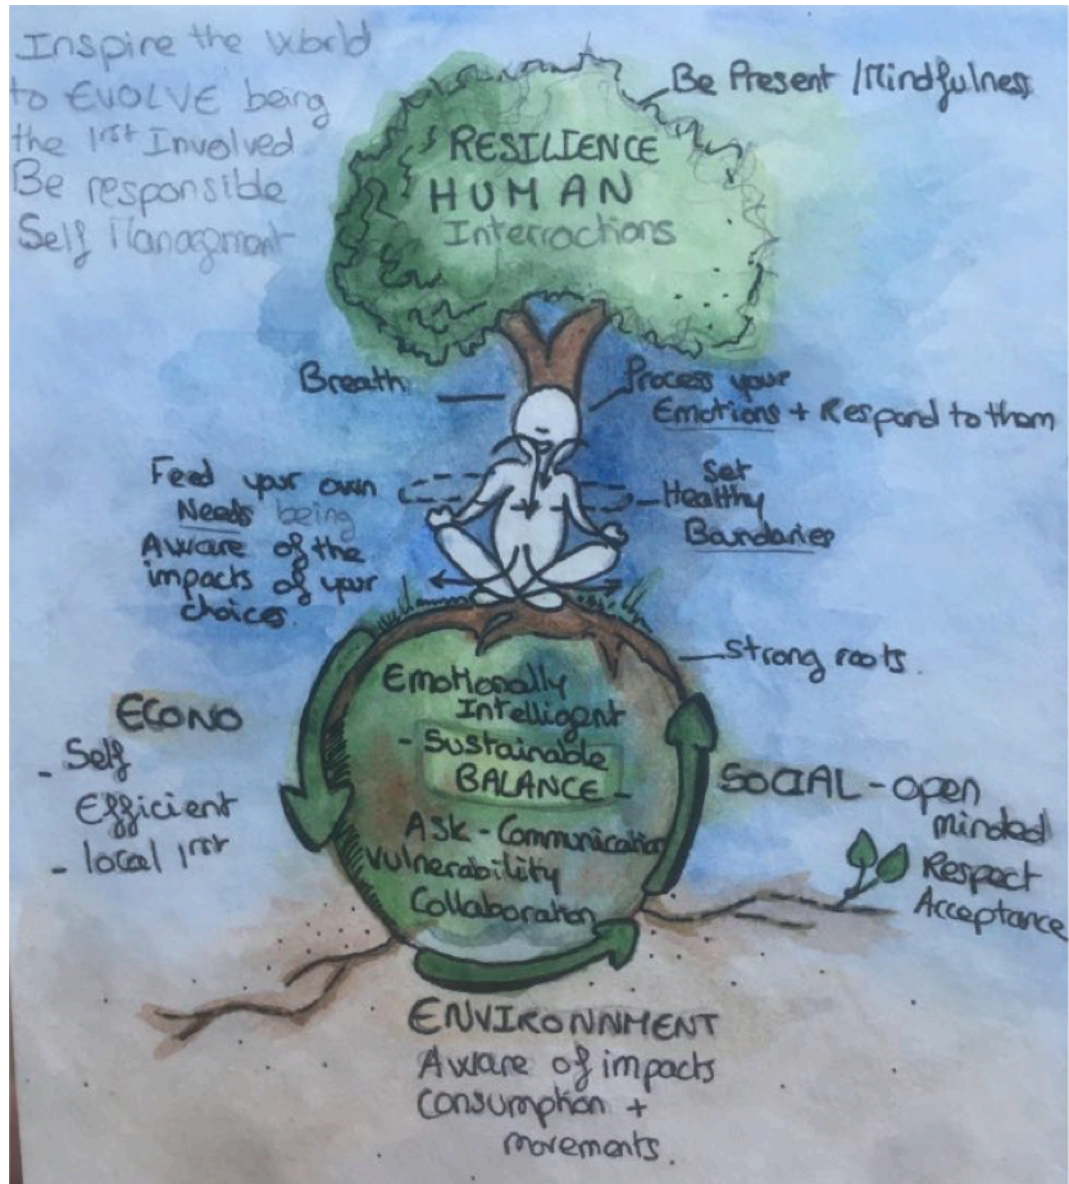 Inspire the World
to EVOLVE being
the 1rst Involved
Be responsible
Self Managment
Be Present /Mindfulness
RESILIENCE
HUMAN
Interractions
Breath
Process your
Emotions + Respond to them
Feed your own
Needs being
Aware of the
impacts of your
choices.
Set
Healthy
Boundaries
Strong roots.
Emotionally
Intelligent
- Sustainable
BALANCE -
Ask - Communication
Vulnerability
Collaboration
ECONO
- Self
Efficient
- local 1rst
SOCIAL - open
minded
Respect
Acceptance
ENVIRONNMENT
Aware of impacts
Consumption +
movements.